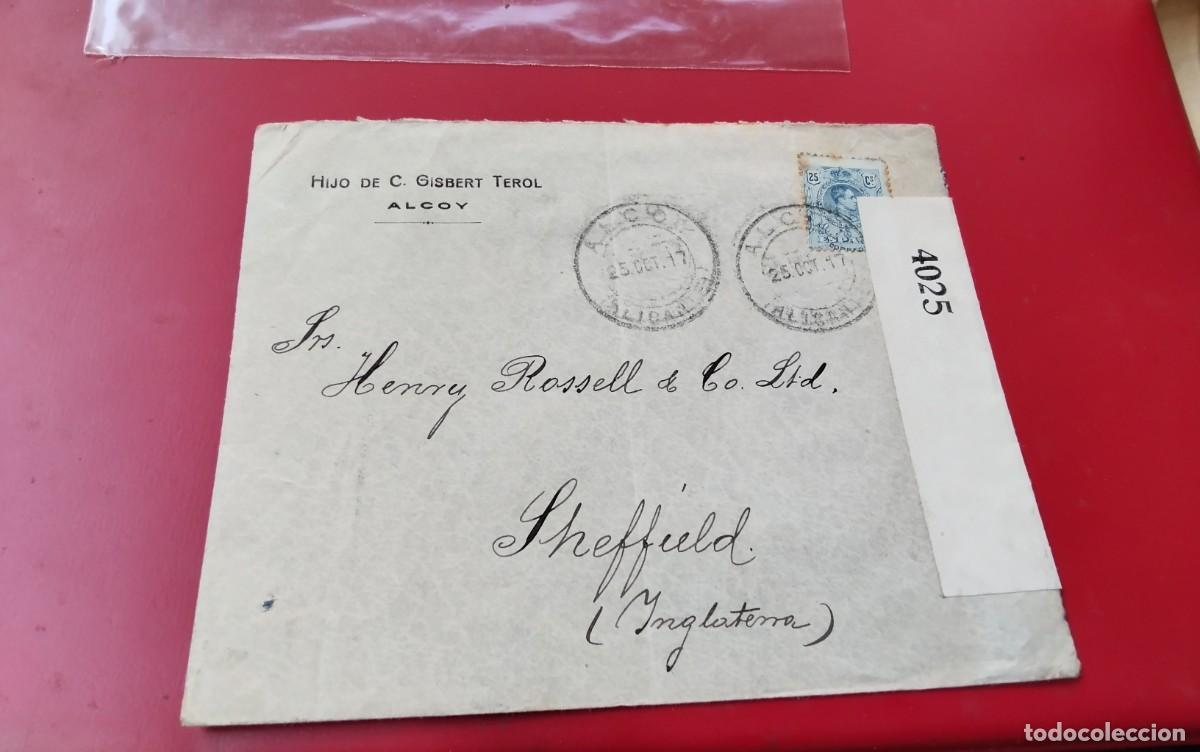 HIJO DE C. GISBERT TEROL
ALCOY
25 Cs
ALCOY
25.OCT.17
(ALICANTE)
ALCOY
25.OCT.17
(ALICAN
4025
Srs.
Henry Rossell & Co. Ltd.
Sheffield.
(Inglaterra)
todocoleccion